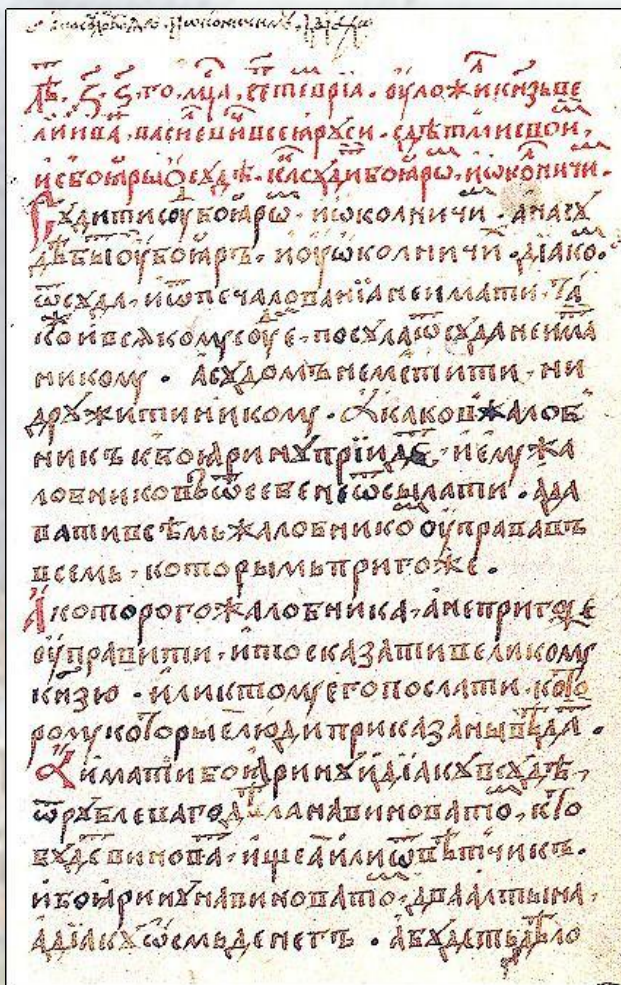 лѣ҃. ҂з҃. ѕ҃. го. мцⷭ҇а. септевріа. ѹложиⷧ кнѕь ве
ликіи иваⷩ҇. васиевиⷱ҇ всеѧ рѹси. съдѣтми своиⷨ,
и сбоꙗры ѡ сѹдѣ. каⷦ҇ сѹдиⷮ боꙗрѡⷨ. и ѡкоⷧничиⷨ.
Сѹдити сѹⷣ боꙗрѡⷨ. и ѡколничиⷨ. а на сѹ
дѣ быⷮ ѹ боꙗръ. и ѹ ѡколничиⷯ. діакоⷨ.
ѿ сѹда. и ѿ печалованіа не имати. та
коⷤ и всѧкомѹ сѹⷣе. посѹла ѿ сѹда не имаⷮ
никомѹ. а сѹдомъ не мстити. ни
дрѹжити никомѹ. а каковⷤ жалоб
никъ к боꙗринѹ прїидеⷮ. и емѹ жа
лобниковъ ѿ себе не ѿсылати. а да
вати всѣмъ жалобникоⷨ ѹправа въ
всемь. которымъ пригоже.
А которого жалобника. а не пригоⷤе
ѹправити. и то сказати великомѹ
кнѕю. или к томѹ его послати. кото
ромѹ которые люди приказаны вѣдаⷮ.
А имати боꙗринѹ и діакѹ в сѹдѣ,
ѿ рѹблеваго дѣла на виноватоⷨ. кто
бѹдеⷮ виноваⷮ. ищеа или ѿвѣтчикъ.
и боꙗринѹ на виноватоⷨ. два алтына.
а діакѹ ѡсмь денегъ. а бѹдетъ дѣло